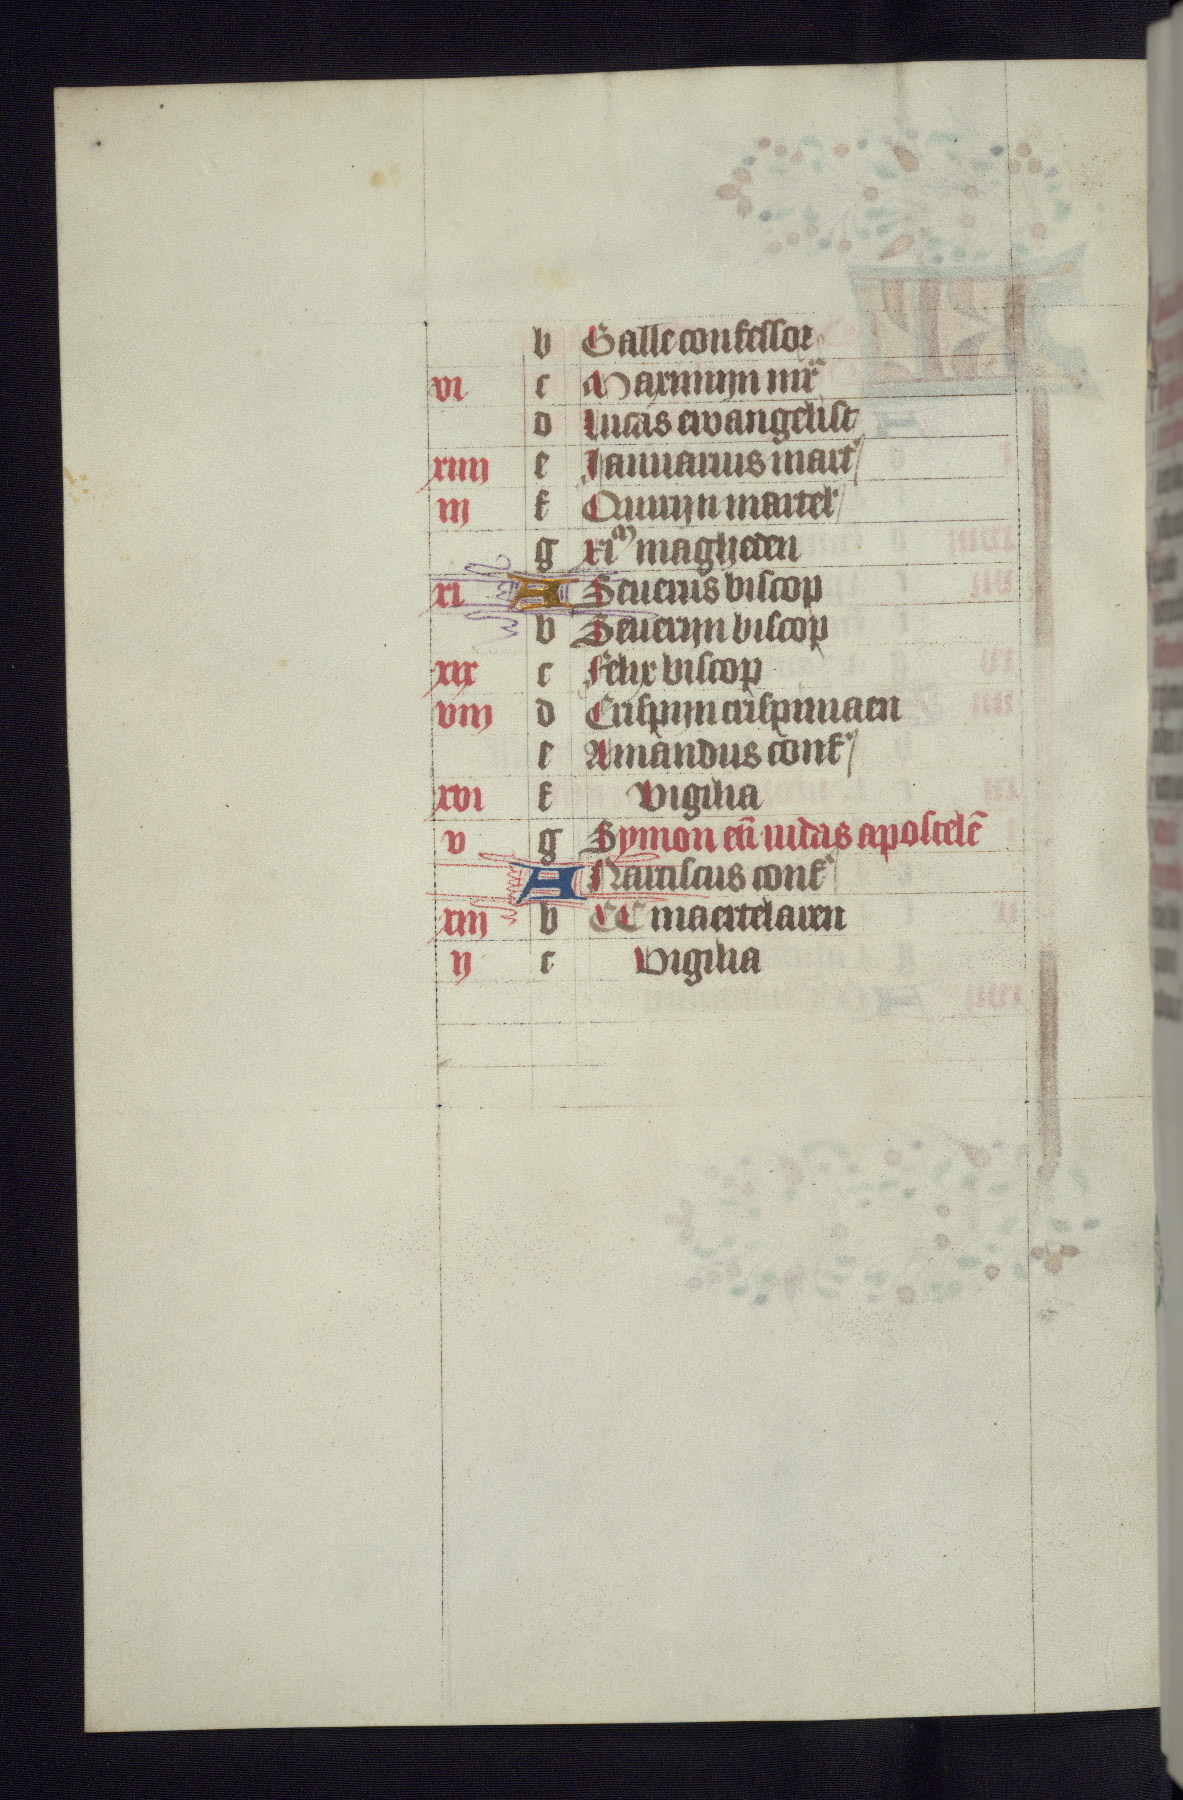 b Galle confessor
vi c Marmijn mr̄
d Lucas ewangelist
xiiii e Januarius mart'
iij f Quirijn martel'
g xim magheden
xi A Seuerus biscop
b Seuerijn biscop
xix c Felix biscop
viij d Crispijn crispiniaen
e Amandus conf'
xvi f Vigilia
v g Symon eñ iudas apostelē
A Narciscus conf'
xiij b CC maertelaren
ij c Vigilia